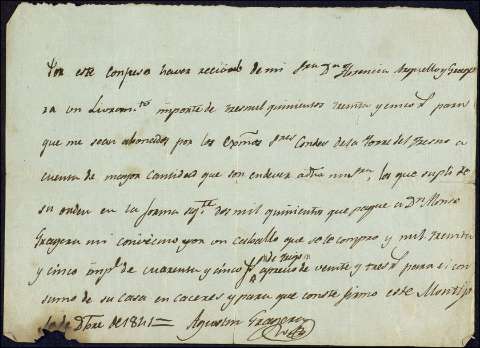 Por este confieso haver recivido de mi Sra Da Florencia Arguello y Grager
ra un Livramto importe de tres mil quinientos treinta y cinco rs para
que me sean abonados por los Exmos Sres Condes de la Torre del Fresno a
cuenta de mayor cantidad que son en dever a dha mi Sra, los que suplo de
su orden en la forma sigte dos mil quinientos que pague a Dn Alonso
Gragera mi convecino por un caballo que se le compro, y mil treinta
y cinco impte de cuarenta y cinco fs de trigo
a precio de veinte y tres rs para el con
sumo de su casa en Caceres y para que conste firmo este Montijo
Dbre de 1841
Agustin Gragera